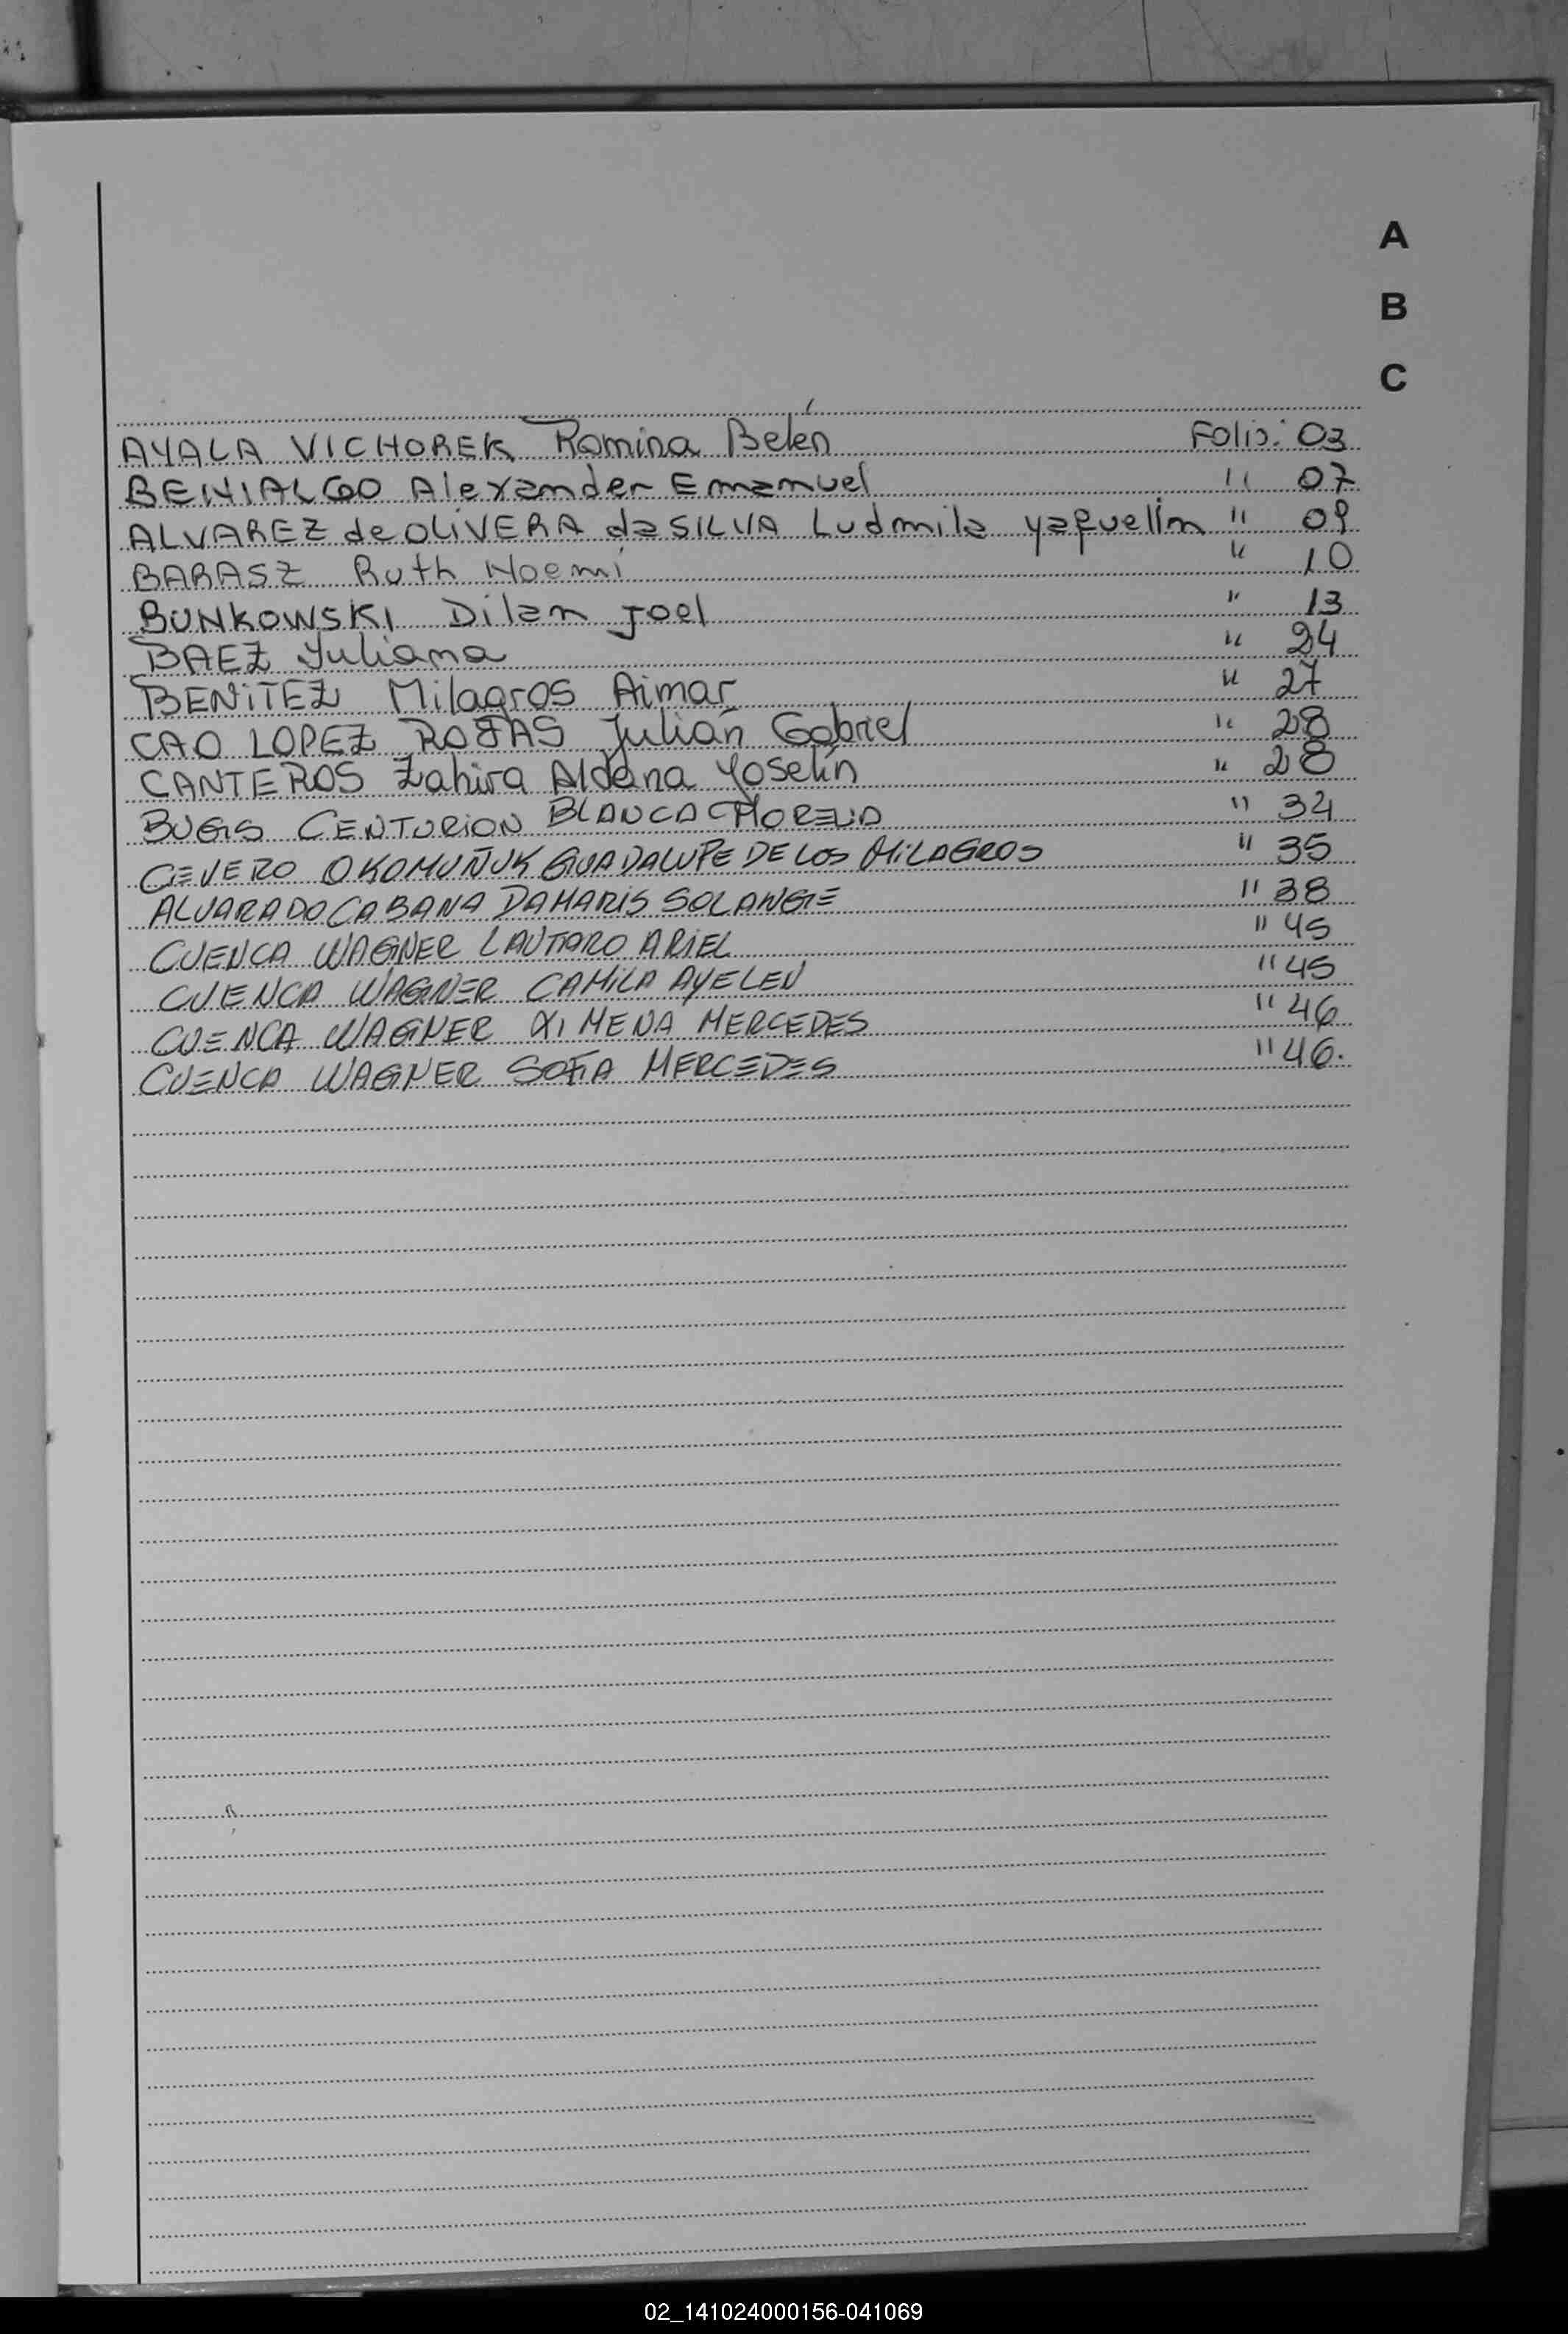 A
B
C
AYALA VICHOREK Romina Belén Folio: 03
BENIALGO Alexander Emanuel " 07
ALVAREZ de OLIVERA da SILVA Ludmila Yaquelín " 09
BARASZ Ruth Noemí " 10
BUNKOWSKI Dilan Joel " 13
BAEZ Yuliana " 24
BENiTEZ Milagros Aimar " 27
CAO LOPEZ ROJAS Julián Gabriel " 28
CANTEROS Zahira Aldana Yoselín " 28
BUGS CENTURION BLANCA " 34
CEVERO OKOMUÑUK GUADALUPE DE LOS MILAGROS " 35
ALVARADO CABANA DAMARIS SOLANGE " 38
CUENCA WAGNER LAUTARO ARIEL " 45
CUENCA WAGNER CAMILA AYELEN " 45
CUENCA WAGNER XIMENA MERCEDES " 46
CUENCA WAGNER SOFIA MERCEDES " 46.
02_141024000156-041069